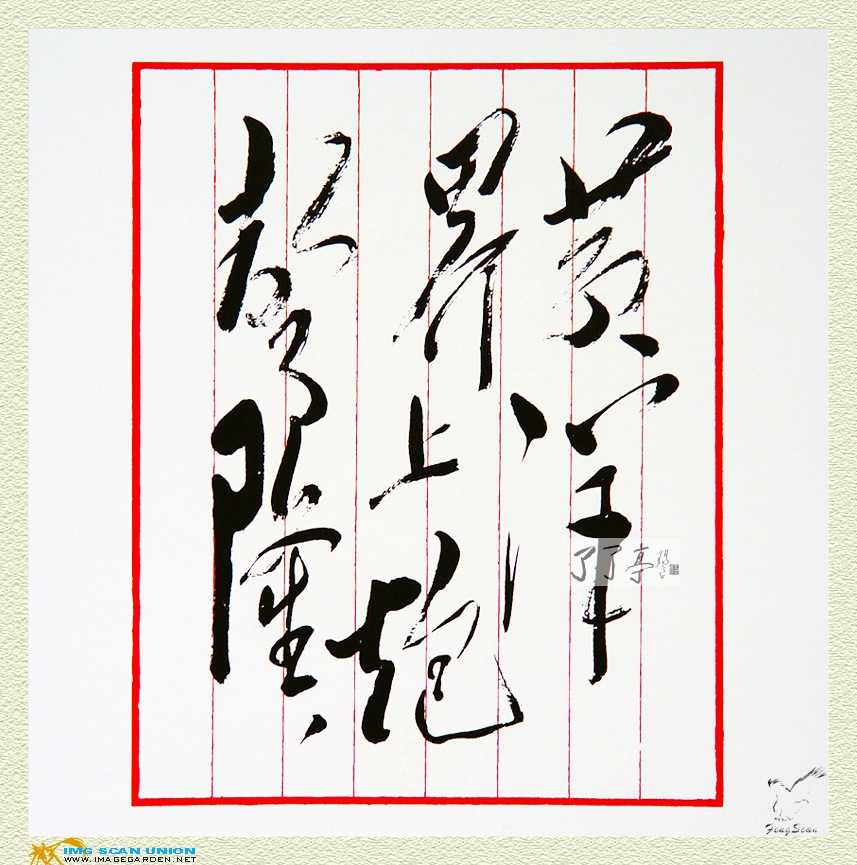 黄洋
界上炮
聲隆
了了亭
FengScan
IMG SCAN UNION
WWW.IMAGEGARDEN.NET